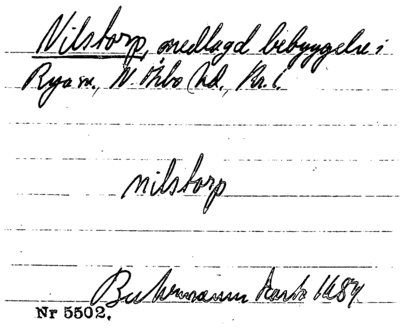 Nilstorp, nedlagd bebyggelse i
Rya sn., N. Åsbo hd., Kr. l.
nilstorp
Buhrmanns karta 1684
Nr 5502.